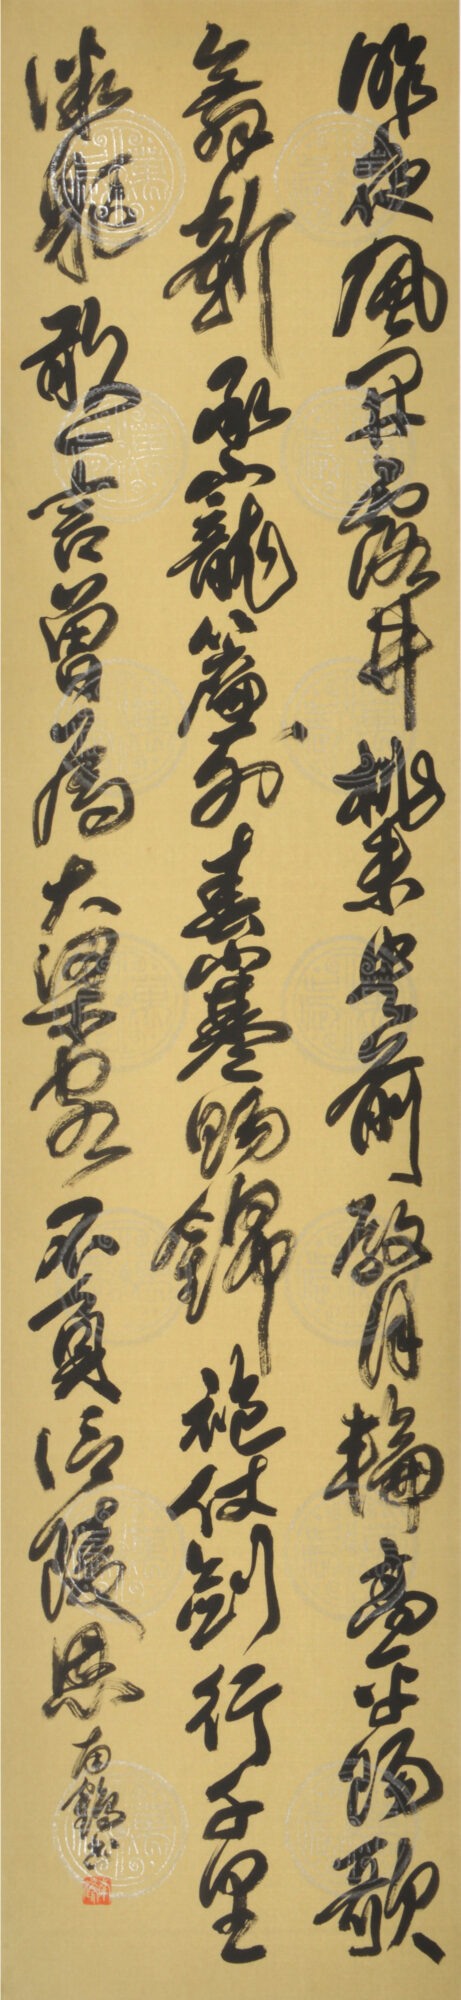 昨夜風開露井桃未央前殿月輪高平陽歌
舞新承寵簾外春寒賜錦袍仗劍行千里
微軀敢一言曾為大梁客不負信陵恩 南鶴書